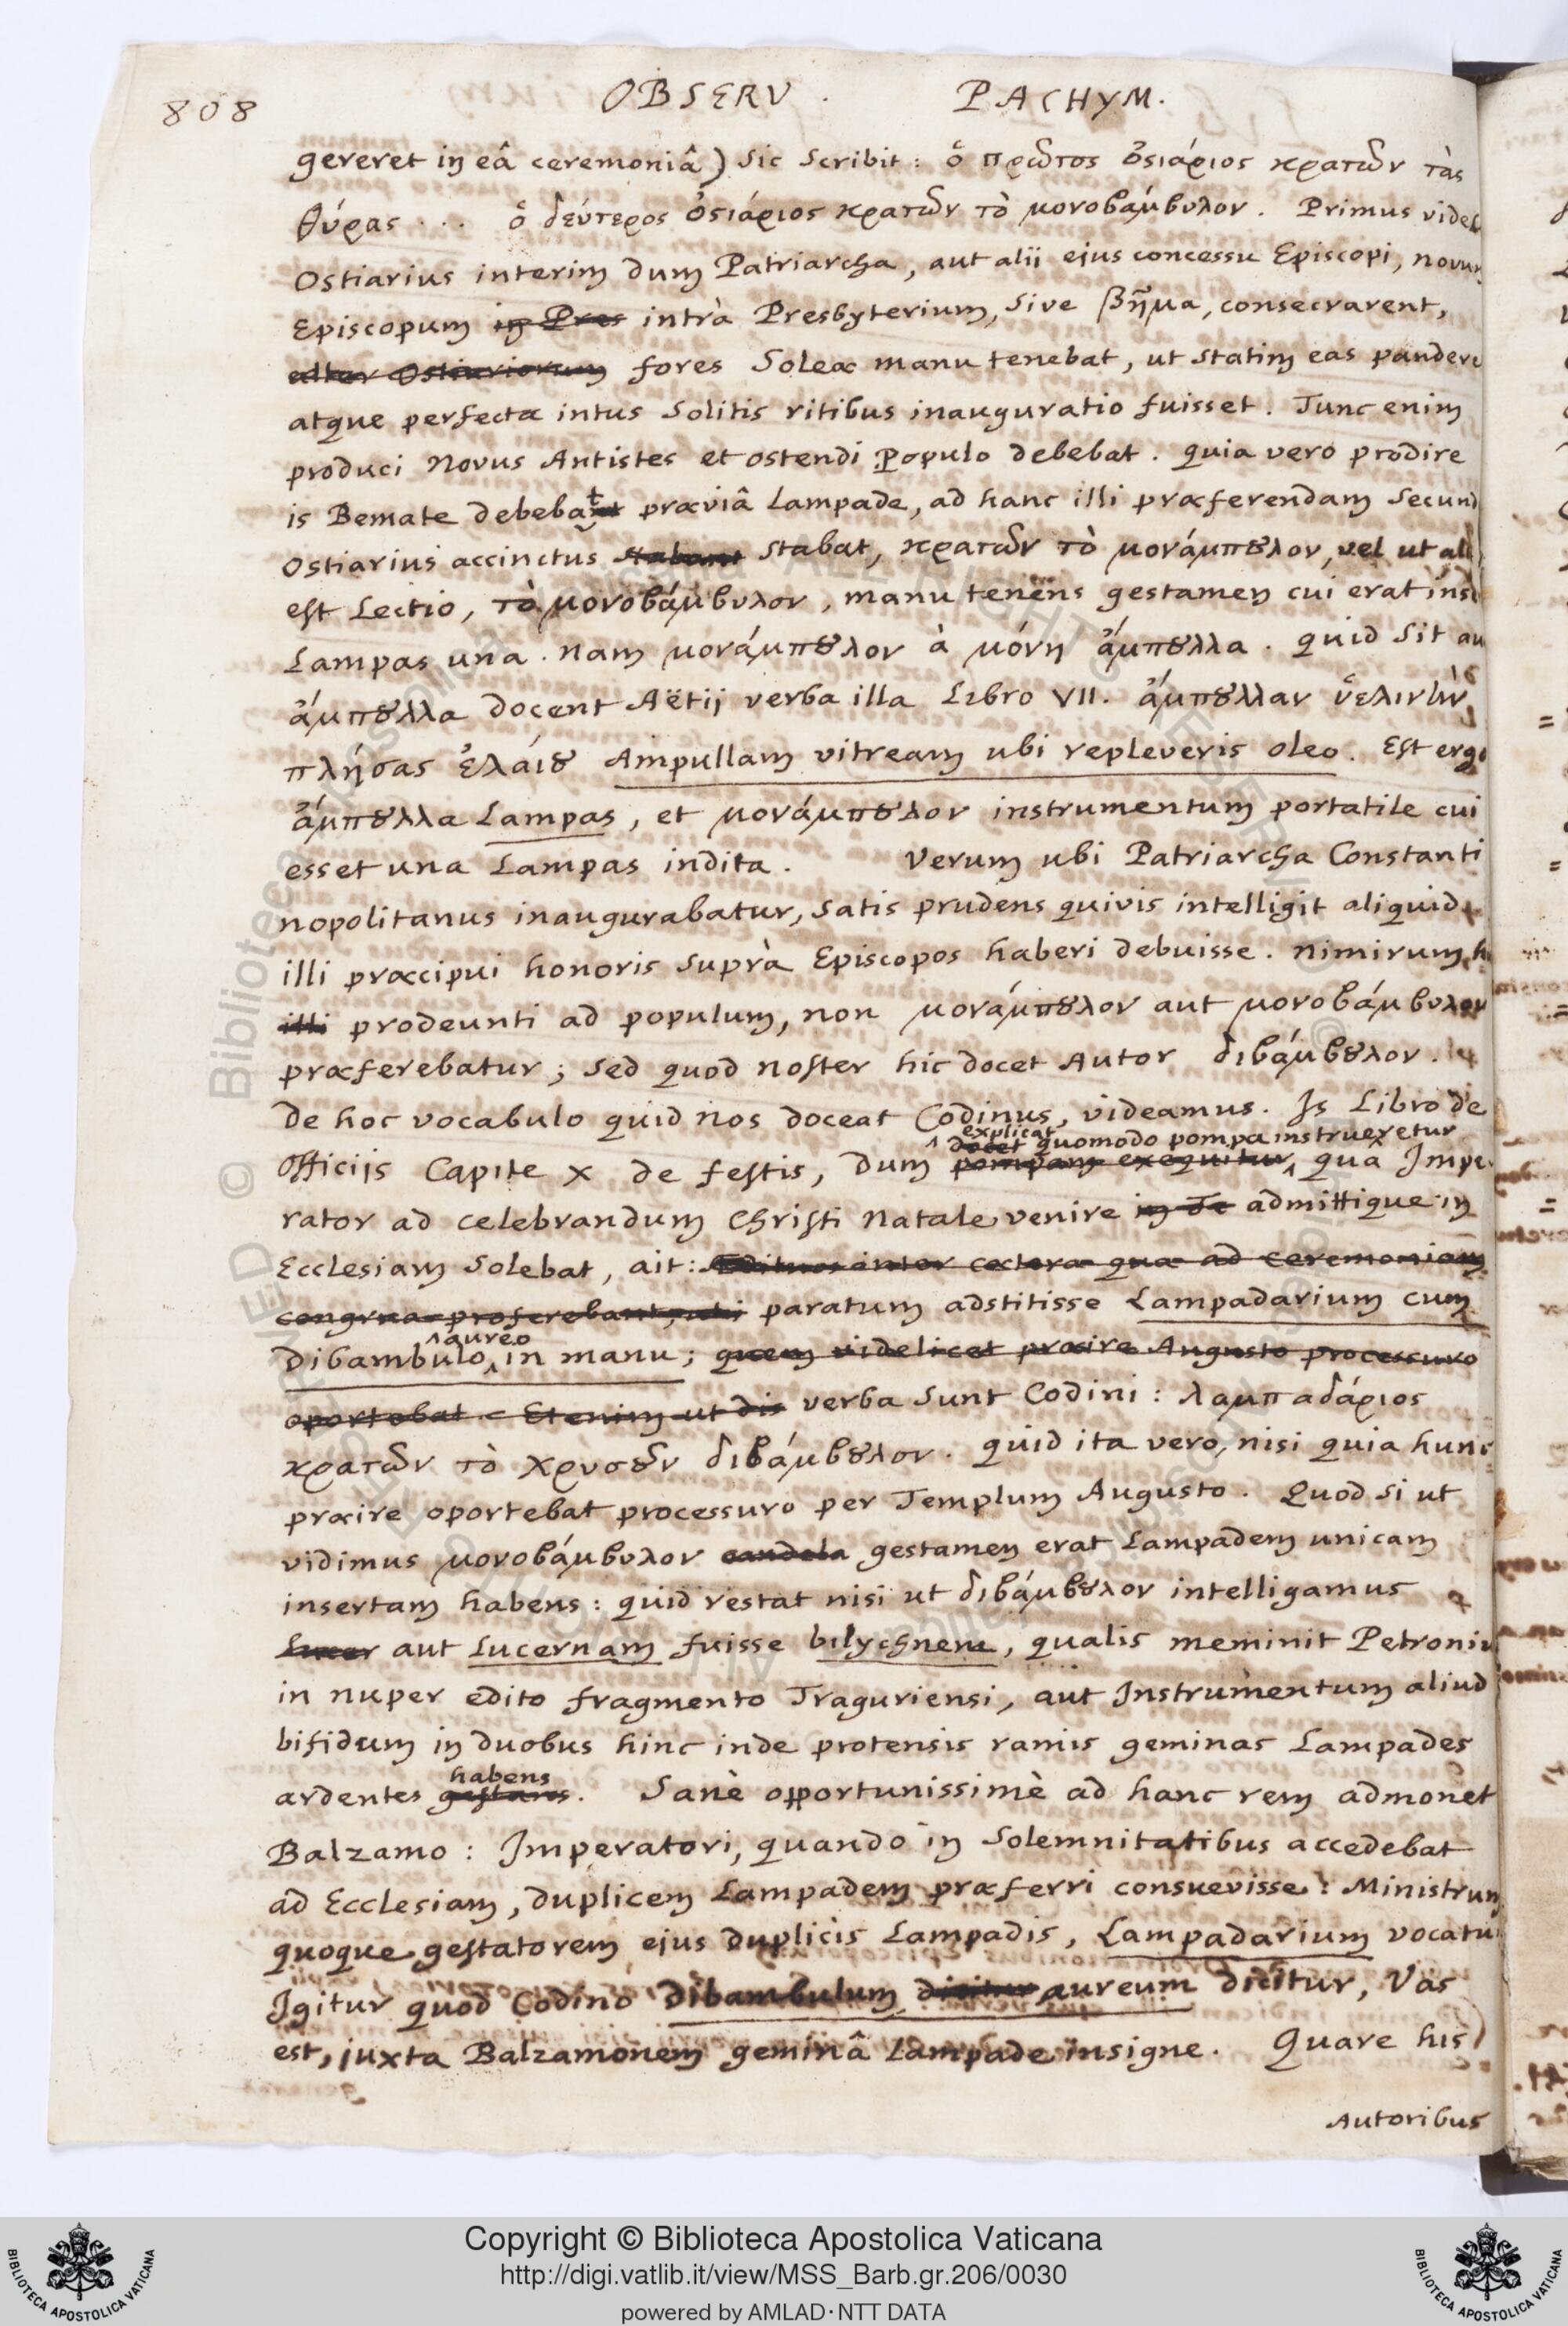 808 OBSERV. PACHYM.
gereret in eâ ceremoniâ) sic scribit: ὁ πρῶτος ὀσιάριος κρατῶν τὰς
θύρας ... ὁ δεύτερος ὀσιάριος κρατῶν τὸ μονοβάμβυλον. Primus videl
Ostiarius interim dum Patriarcha, aut alii ejus concessu Episcopi, novum
Episcopum in Pres intrà Presbyterium, sive βῆμα, consecrarent,
alter Ostiariorum fores Soleæ manu tenebat, ut statim eas pandere
atque perfecta intus solitis ritibus inauguratio fuisset. Tunc enim
produci Novus Antistes et ostendi Populo debebat. quia vero prodire
is Bemate debebat præviâ Lampade, ad hanc illi præferendam Secund
Ostiarius accinctus stabant stabat, κρατῶν τὸ μονάμπȣλον, vel ut ali
est Lectio, τὸ μονοβάμβυλον, manu tenens gestamen cui erat insi
Lampas una. nam μονάμπȣλον à μόνη ἄμπȣλλα. quid sit au
ἄμπȣλλα docent Aëtij verba illa Libro VII. ἄμπȣλλαν ὑελινὴν
πλήσας ἐλαίȣ Ampullam vitream ubi repleveris oleo. Est ergo
ἄμπȣλλα Lampas, et μονάμπȣλον instrumentum portatile cui
esset una Lampas indita. Verum ubi Patriarcha Constanti
nopolitanus inaugurabatur, satis prudens quivis intelligit aliquid
illi præcipui honoris suprà Episcopos haberi debuisse. Nimirum h
illi prodeunti ad populum, non μονάμπȣλον aut μονοβάμβυλον
præferebatur; sed quod noster hic docet Autor διβάμβȣλον.
De hoc vocabulo quid nos doceat Codinus, videamus. Is Libro de
explicat
docet quomodo pompa instrueretur
Officijs Capite X de festis, dum pompam exequitur, quâ Impe
rator ad celebrandum Christi Natale venire in admittique in
Ecclesiam solebat, ait: inter cætera quæ ad ceremoniam
congrua proferebant, paratum adstitisse Lampadarium cum
aureo
Dibambulo in manu; quem videlicet præire Augusto processuro
oportebat. Etenim ut dis verba sunt Codini: λαμπαδάριος
κρατῶν τὸ χρυσȣ̂ν διβάμβȣλον. quid ita vero, nisi quia hunc
præire oportebat processuro per Templum Augusto. Quod si ut
vidimus μονοβάμβυλον candela gestamen erat Lampadem unicam
insertam habens: quid restat nisi ut διβάμβȣλον intelligamus
Lucer aut Lucernam fuisse bilychnem, qualis meminit Petroniu
in nuper edito fragmento Traguriensi, aut Instrumentum aliud
bifidum in duobus hinc inde protensis ramis geminas Lampades
habens
ardentes gestans. Sanè opportunissimè ad hanc rem admonet
Balzamo: Imperatori, quando in Solemnitatibus accedebat
ad Ecclesiam, duplicem Lampadem præferri consuevisse: Ministrum
quoque gestatorem ejus duplicis Lampadis, Lampadarium vocatu
Igitur quod Codino dibambulum dicitur aureum dicitur, Vas
est, juxta Balzamonem geminâ Lampade insigne. Quare his
Autoribus
Copyright © Biblioteca Apostolica Vaticana
http://digi.vatlib.it/view/MSS_Barb.gr.206/0030
powered by AMLAD·NTT DATA
BIBLIOTECA APOSTOLICA VATICANA
BIBLIOTECA APOSTOLICA VATICANA